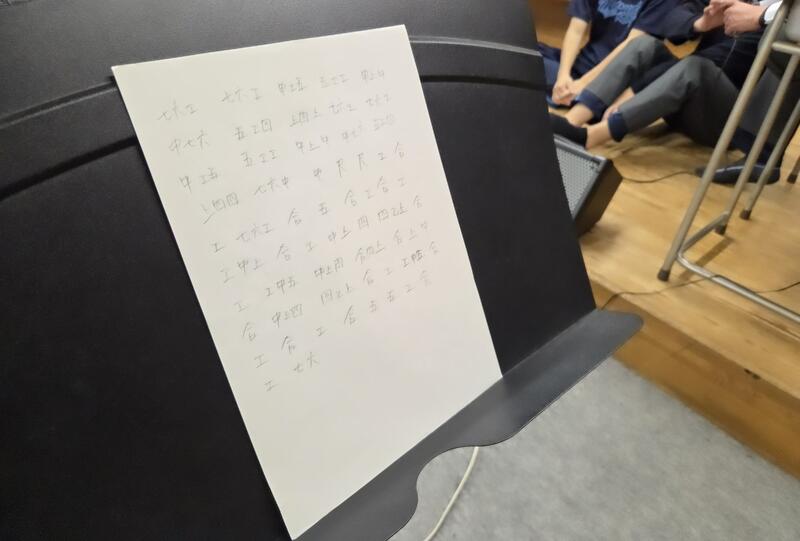 七六工 七六工 中上五 五工工 中上中
中七六 五工四 上四上 七六工 七六工
中工五 五工工 中上中 中七六 五工四
四四 七六中 中 尺 尺 工 合
工 七六工 合 五 合 工 合 工
工 中上 合 工 中上 四 四工上 合
工 工中五 中上四 合四上 合 上 中
合 中上四 四工上 合 工 工中五 合
工 合 工 合 五 五 工 合
工 七六